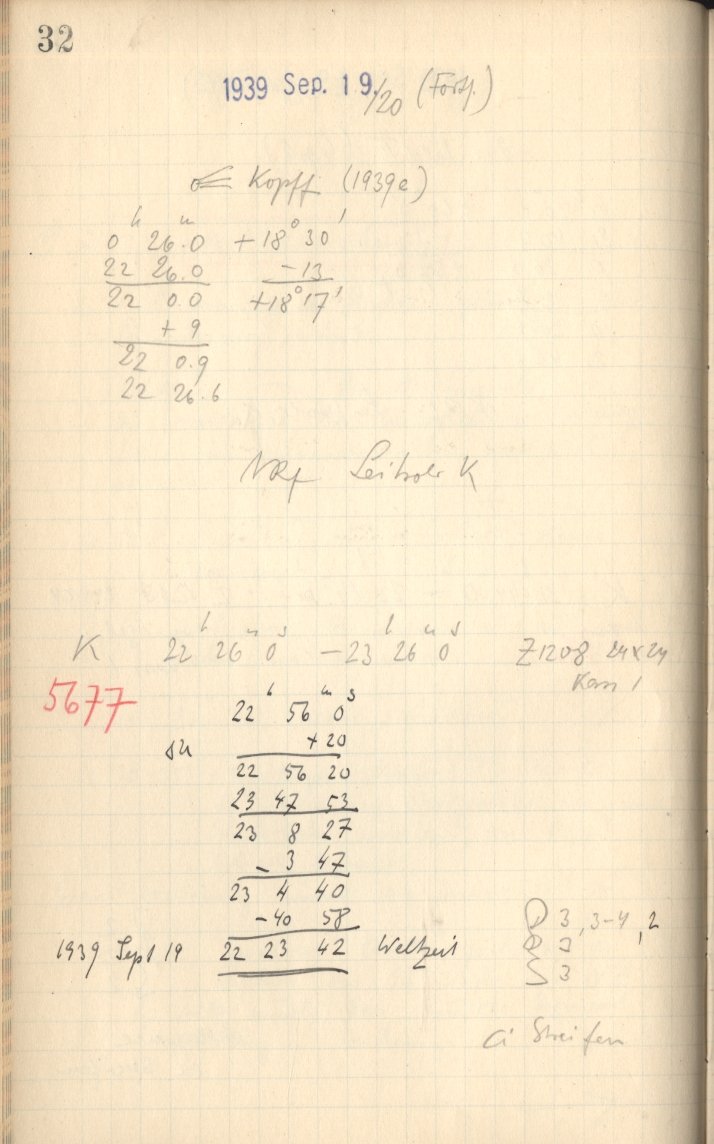 32
1939 Sep. 19./20 (Forts.)
Kopff (1939e)
0ʰ 26.0ᵐ +18° 30'
22 26.0 -13
22 0.0 +18° 17'
+ 9
22 0.9
22 26.6
K
K 22ʰ 26ᵐ 0ˢ -23ʰ 26ᵐ 0ˢ Z1208 24x24
Kass 1
5677
22ʰ 56ᵐ 0ˢ
su + 20
22 56 20
23 47 53
23 8 27
- 3 47
23 4 40
-40 58
1939 Sept 19 22 23 42 Weltzeit
3, 3-4, 2
2
3
Ci Streifen